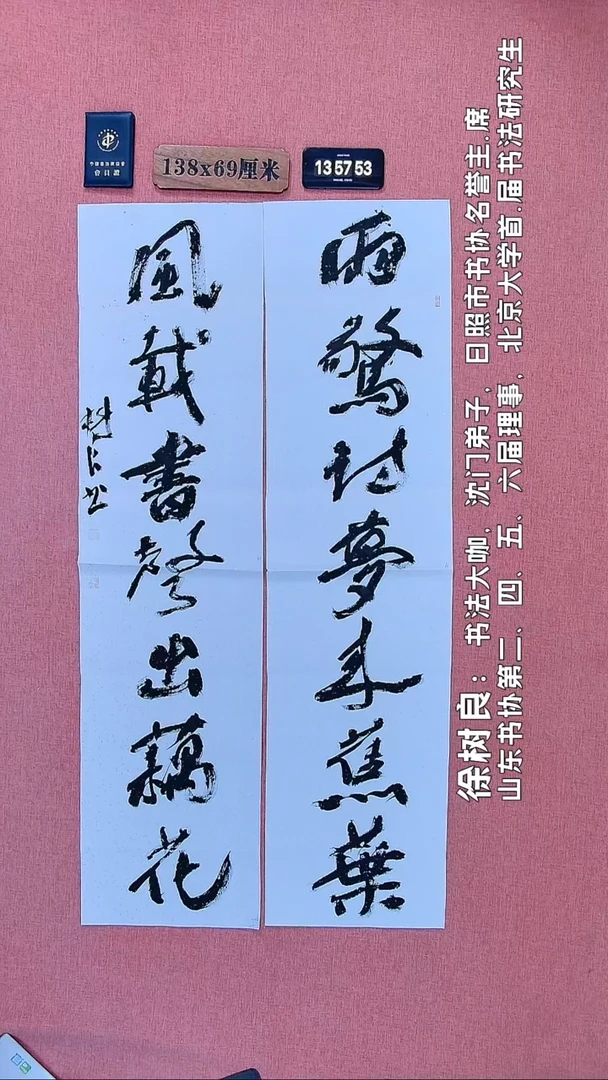 中国书法家协会
会员证
138x69厘米
13 57 53
雨驚詩夢來蕉葉
風載書聲出藕花
樹良書
徐树良：书法大咖，沈门弟子，日照市书协名誉主.席
山东书协第二、四、五、六届理事，北京大学首.届书法研究生